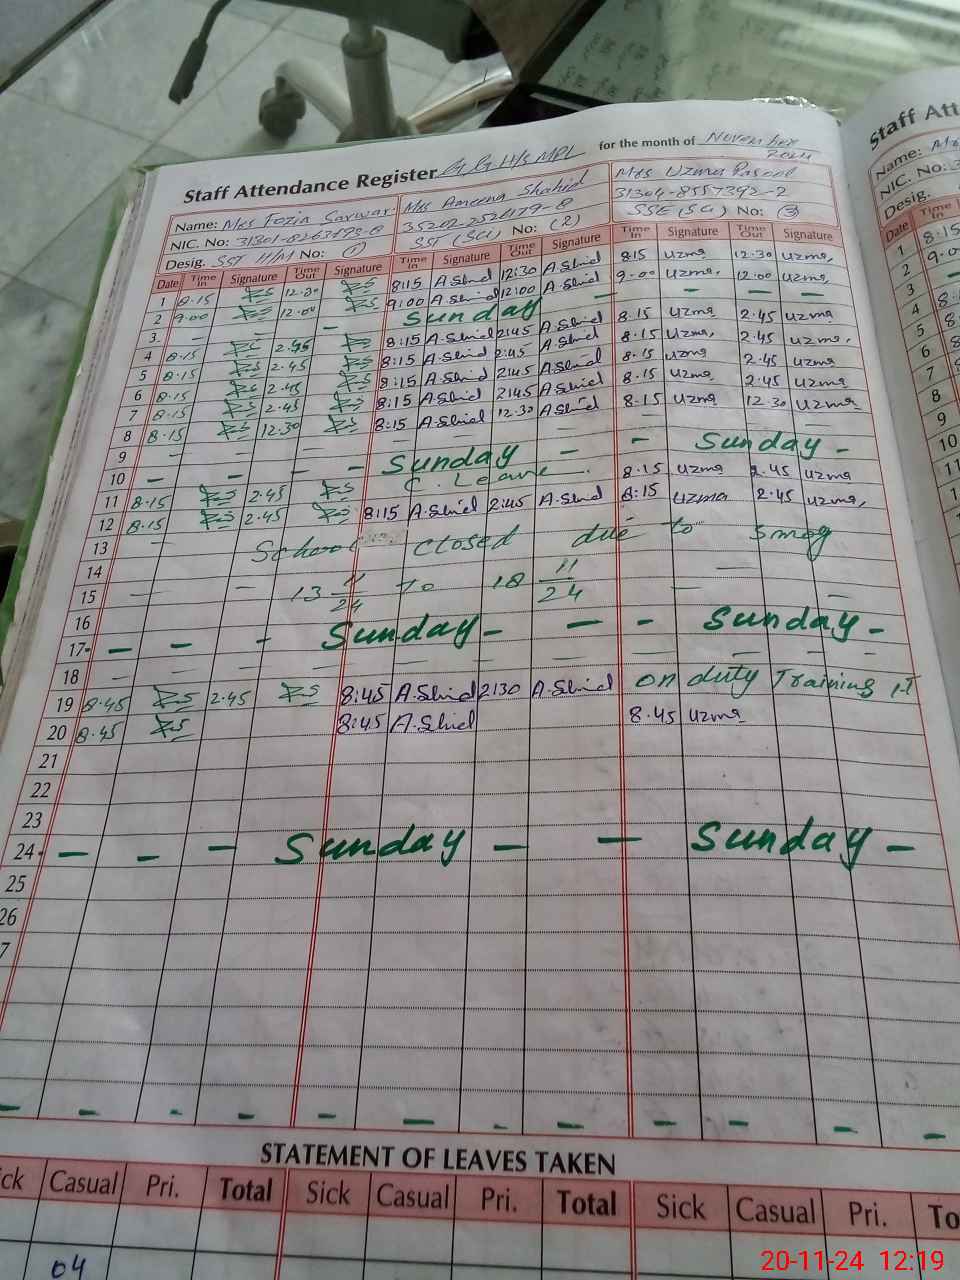 Staff Attendance Register G.G.H/S MPL for the month of November 2024
Name: Mrs Fozia Sarwar Mrs Ameena Shahid Mrs Uzma Rasool
NIC. No: 35202-2526179-8 31304-8557392-2
Desig. SST H/M No: (1) SST (Sci) No: (2) SSE (Sci) No: (3)
Date Time In Signature Time Out Signature Time In Signature Time Out Signature Time In Signature Time Out Signature
1 8.15 12.30 8:15 A.Shid 12:30 A.Shid 8.15 uzma 12.30 uzma
2 9.00 12.00 9:00 A.Shid 12:00 A.Shid 9.00 uzma 12.00 uzma
3 - - Sunday - - - -
4 8.15 2.45 8:15 A.Shid 2:45 A.Shid 8.15 uzma 2.45 uzma
5 8.15 2.45 8:15 A.Shid 2:45 A.Shid 8.15 uzma 2.45 uzma
6 8.15 2.45 8:15 A.Shid 2:45 A.Shid 8.15 uzma 2.45 uzma
7 8.15 2.45 8:15 A.Shid 2:45 A.Shid 8.15 uzma 2.45 uzma
8 8.15 12.30 8:15 A.Shid 12:30 A.Shid 8.15 uzma 12.30 uzma
9 - - - -
10 - - - - Sunday - - Sunday -
11 8.15 2.45 C. Leave 8.15 uzma 2.45 uzma
12 8.15 2.45 8:15 A.Shid 2:45 A.Shid 8:15 uzma 2.45 uzma
13 - School closed due to smog
14
15 - - 13 11/24 To 18 11/24 - -
16
17 - - - Sunday - - - Sunday -
18 - - - -
19 8.45 2.45 8:45 A.Shid 2:30 A.Shid on duty Training I.T
20 8.45 8:45 A.Shid 8.45 uzma
21
22
23
24 - - - Sunday - - Sunday -
25
26
7
STATEMENT OF LEAVES TAKEN
ick Casual Pri. Total Sick Casual Pri. Total Sick Casual Pri. To
04
Staff Att
Name: Mr
NIC. No:
Desig.
Date Time In
1 8:15
2 9.0
3
4 8.
5 8
6 8
7
8
9
10
11
12
20-11-24 12:19